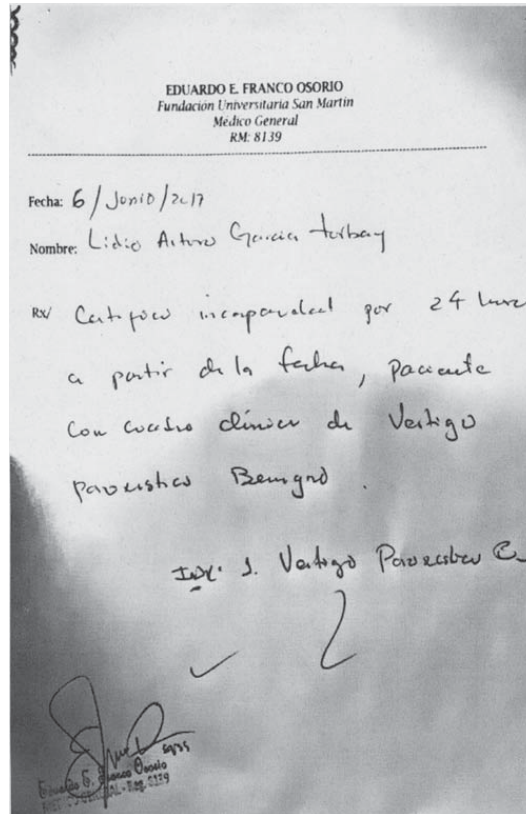 EDUARDO E. FRANCO OSORIO
Fundación Universitaria San Martín
Médico General
RM: 8139
Fecha: 6/Junio/2017
Nombre: Lidio Arturo Garcia turbay
Rx/ Certifico incapacidad por 24 horas
a partir de la fecha, paciente
con cuadro clínico de Vertigo
paroxistico Benigno.
IDX: 1. Vertigo Paroxistico B
Eduardo E. Franco Osorio
MEDICO GENERAL - Reg. 8139